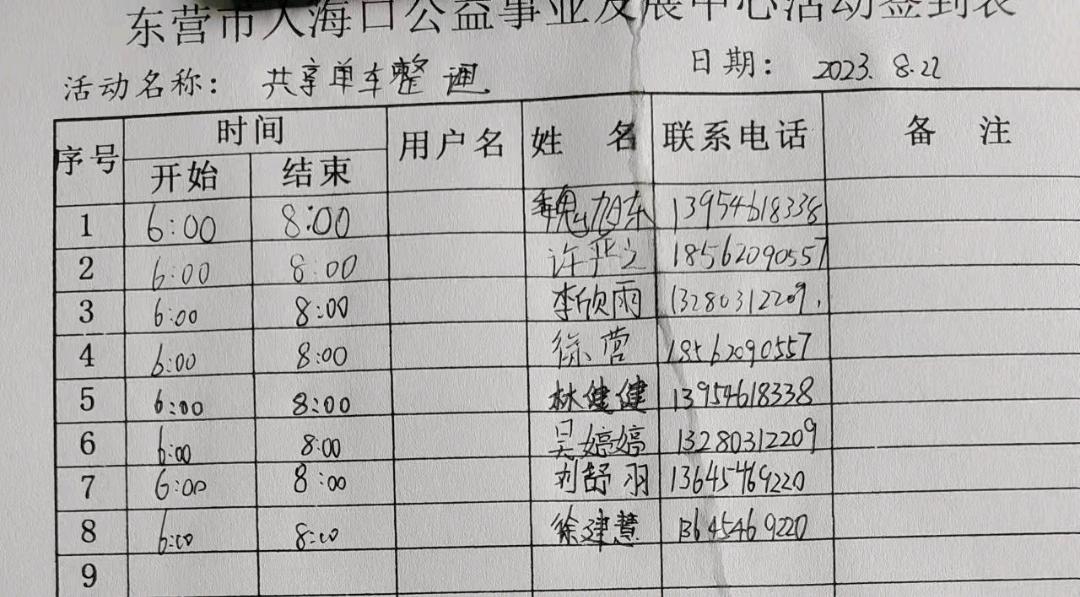 东营市入海口公益事业发展中心活动签到表
活动名称： 共享单车整理 日期： 2023. 8.22
序号 时间 用户名 姓 名 联系电话 备 注
开始 结束
1 6:00 8:00 魏旭东 13954618338
2 6:00 8:00 许严之 18562090557
3 6:00 8:00 李欣雨 13280312209.
4 6:00 8:00 徐营 18562090557
5 6:00 8:00 林健健 13954618338
6 6:00 8:00 吴婷婷 13280312209
7 6:00 8:00 刘舒羽 13645469220
8 6:00 8:00 徐建慧 13645469220
9